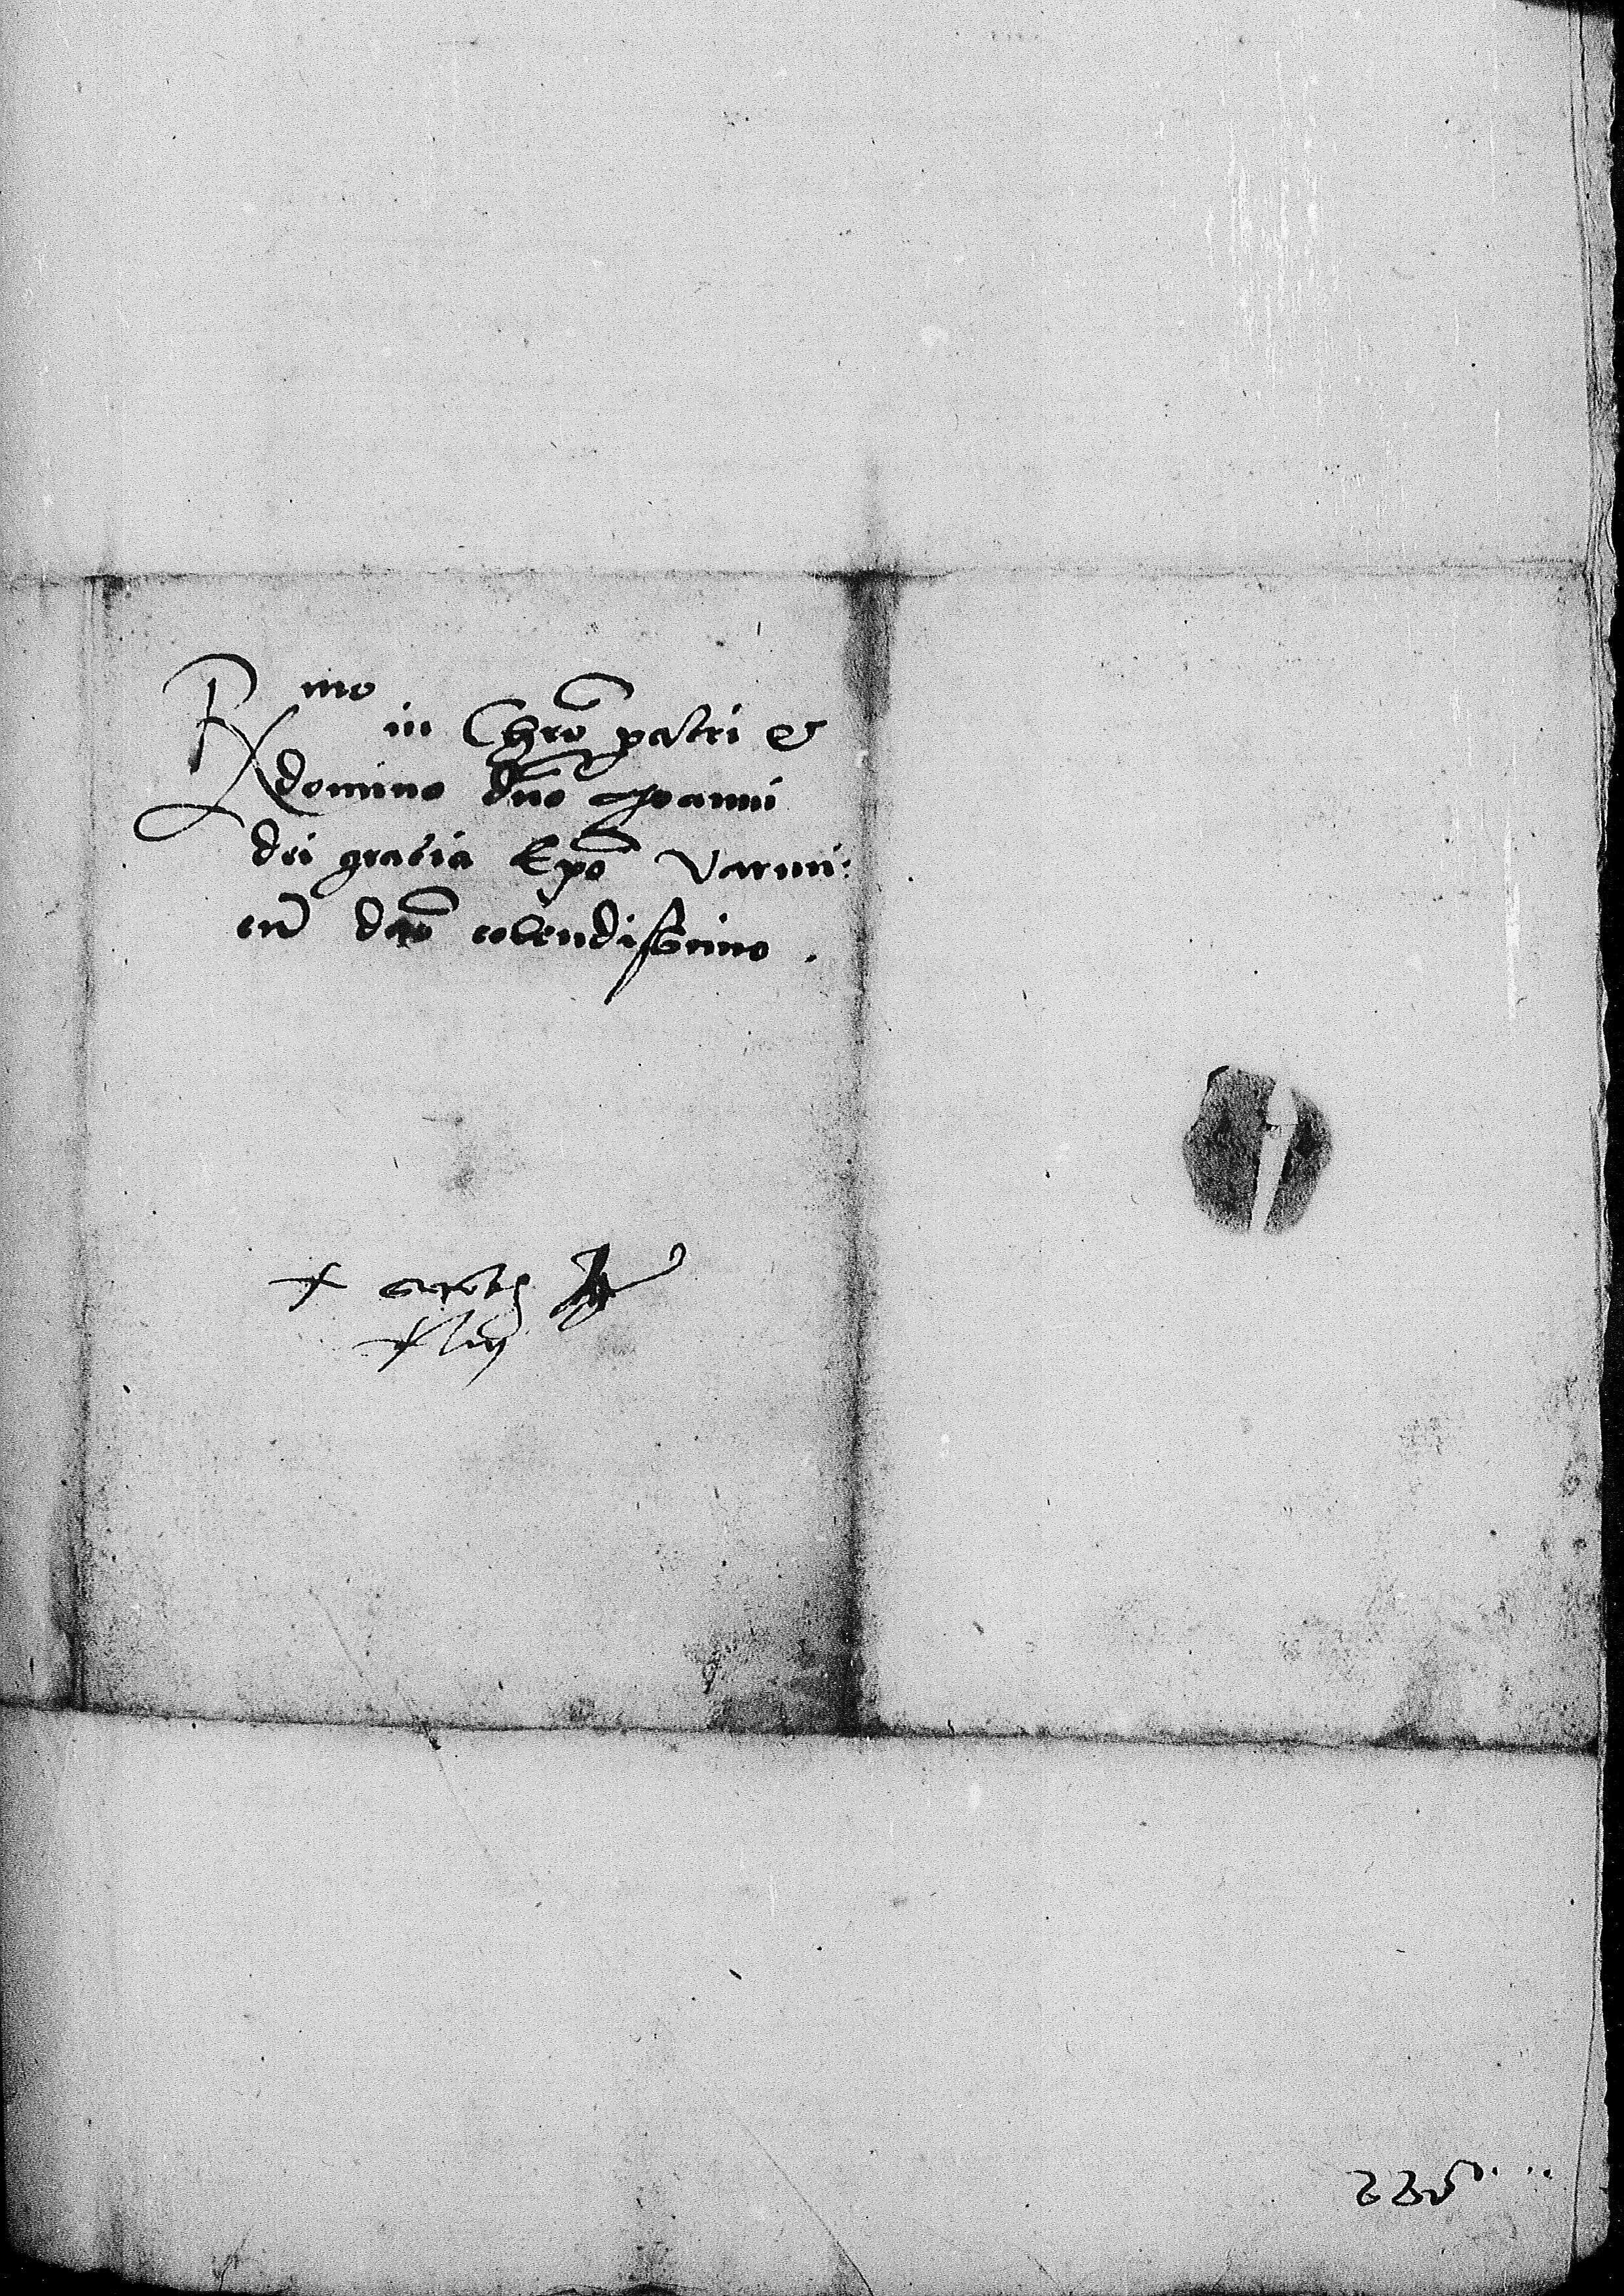 R mo in Chro patri et
domino dno Joanni
dei gratia Epo Varmi:
en dno colendissimo.